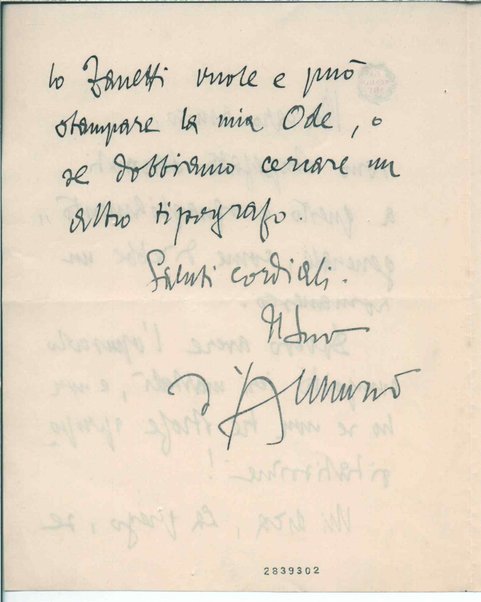 lo Zanetti vuole e può
stampare la mia Ode, o
se dobbiamo cercare un
altro tipografo.
Saluti cordiali.
Il suo
D'Annunzio
2839302